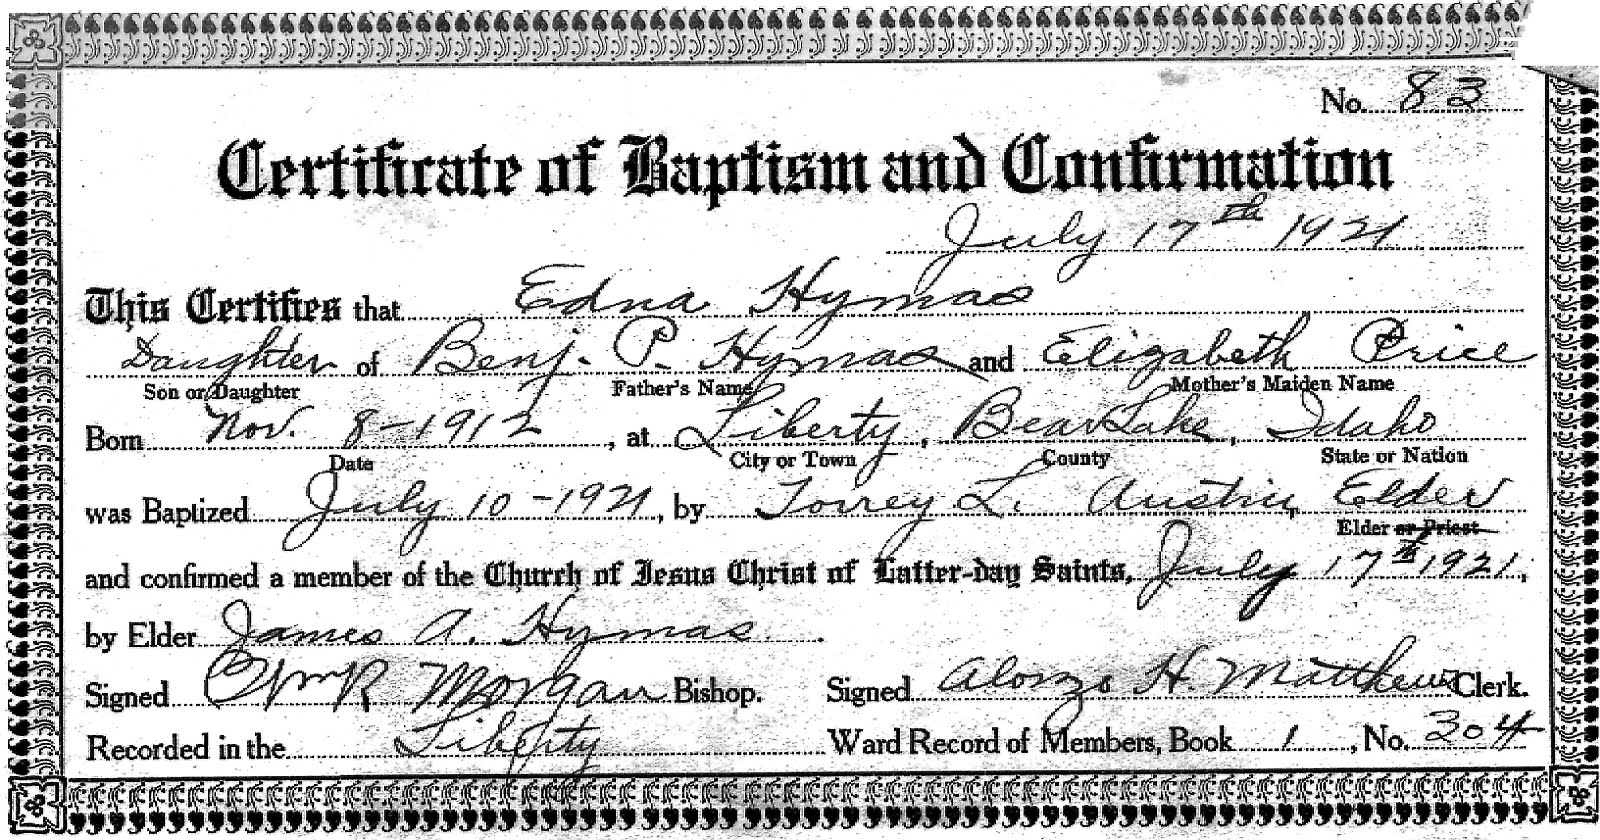 No. 83
Certificate of Baptism and Confirmation
July 17th 1921
This Certifies that Edna Hymas
Daughter of Benj. P. Hymas and Elizabeth Price
Son or Daughter Father's Name Mother's Maiden Name
Born Nov. 8-1912, at Liberty, Bear Lake, Idaho
Date City or Town County State or Nation
was Baptized July 10-1921, by Torrey L. Austin, Elder
Elder or Priest
and confirmed a member of the Church of Jesus Christ of Latter-day Saints, July 17th 1921,
by Elder James A. Hymas.
Signed Morgan Bishop. Signed Alonzo H. Matthews Clerk.
Recorded in the Liberty Ward Record of Members, Book 1, No. 304